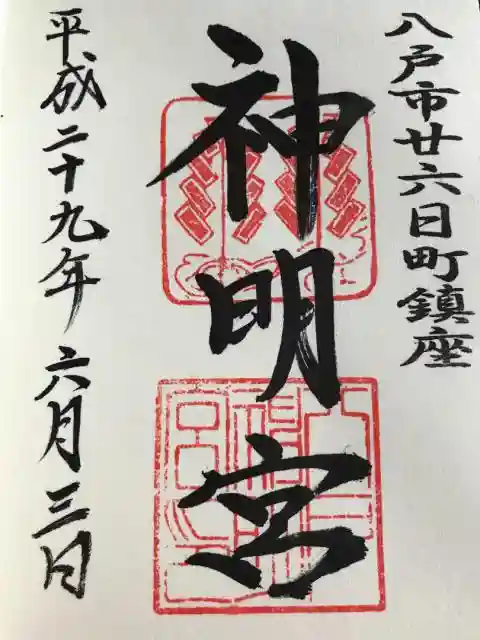 八戸市廿六日町鎮座
神明宮
平成二十九年六月三日